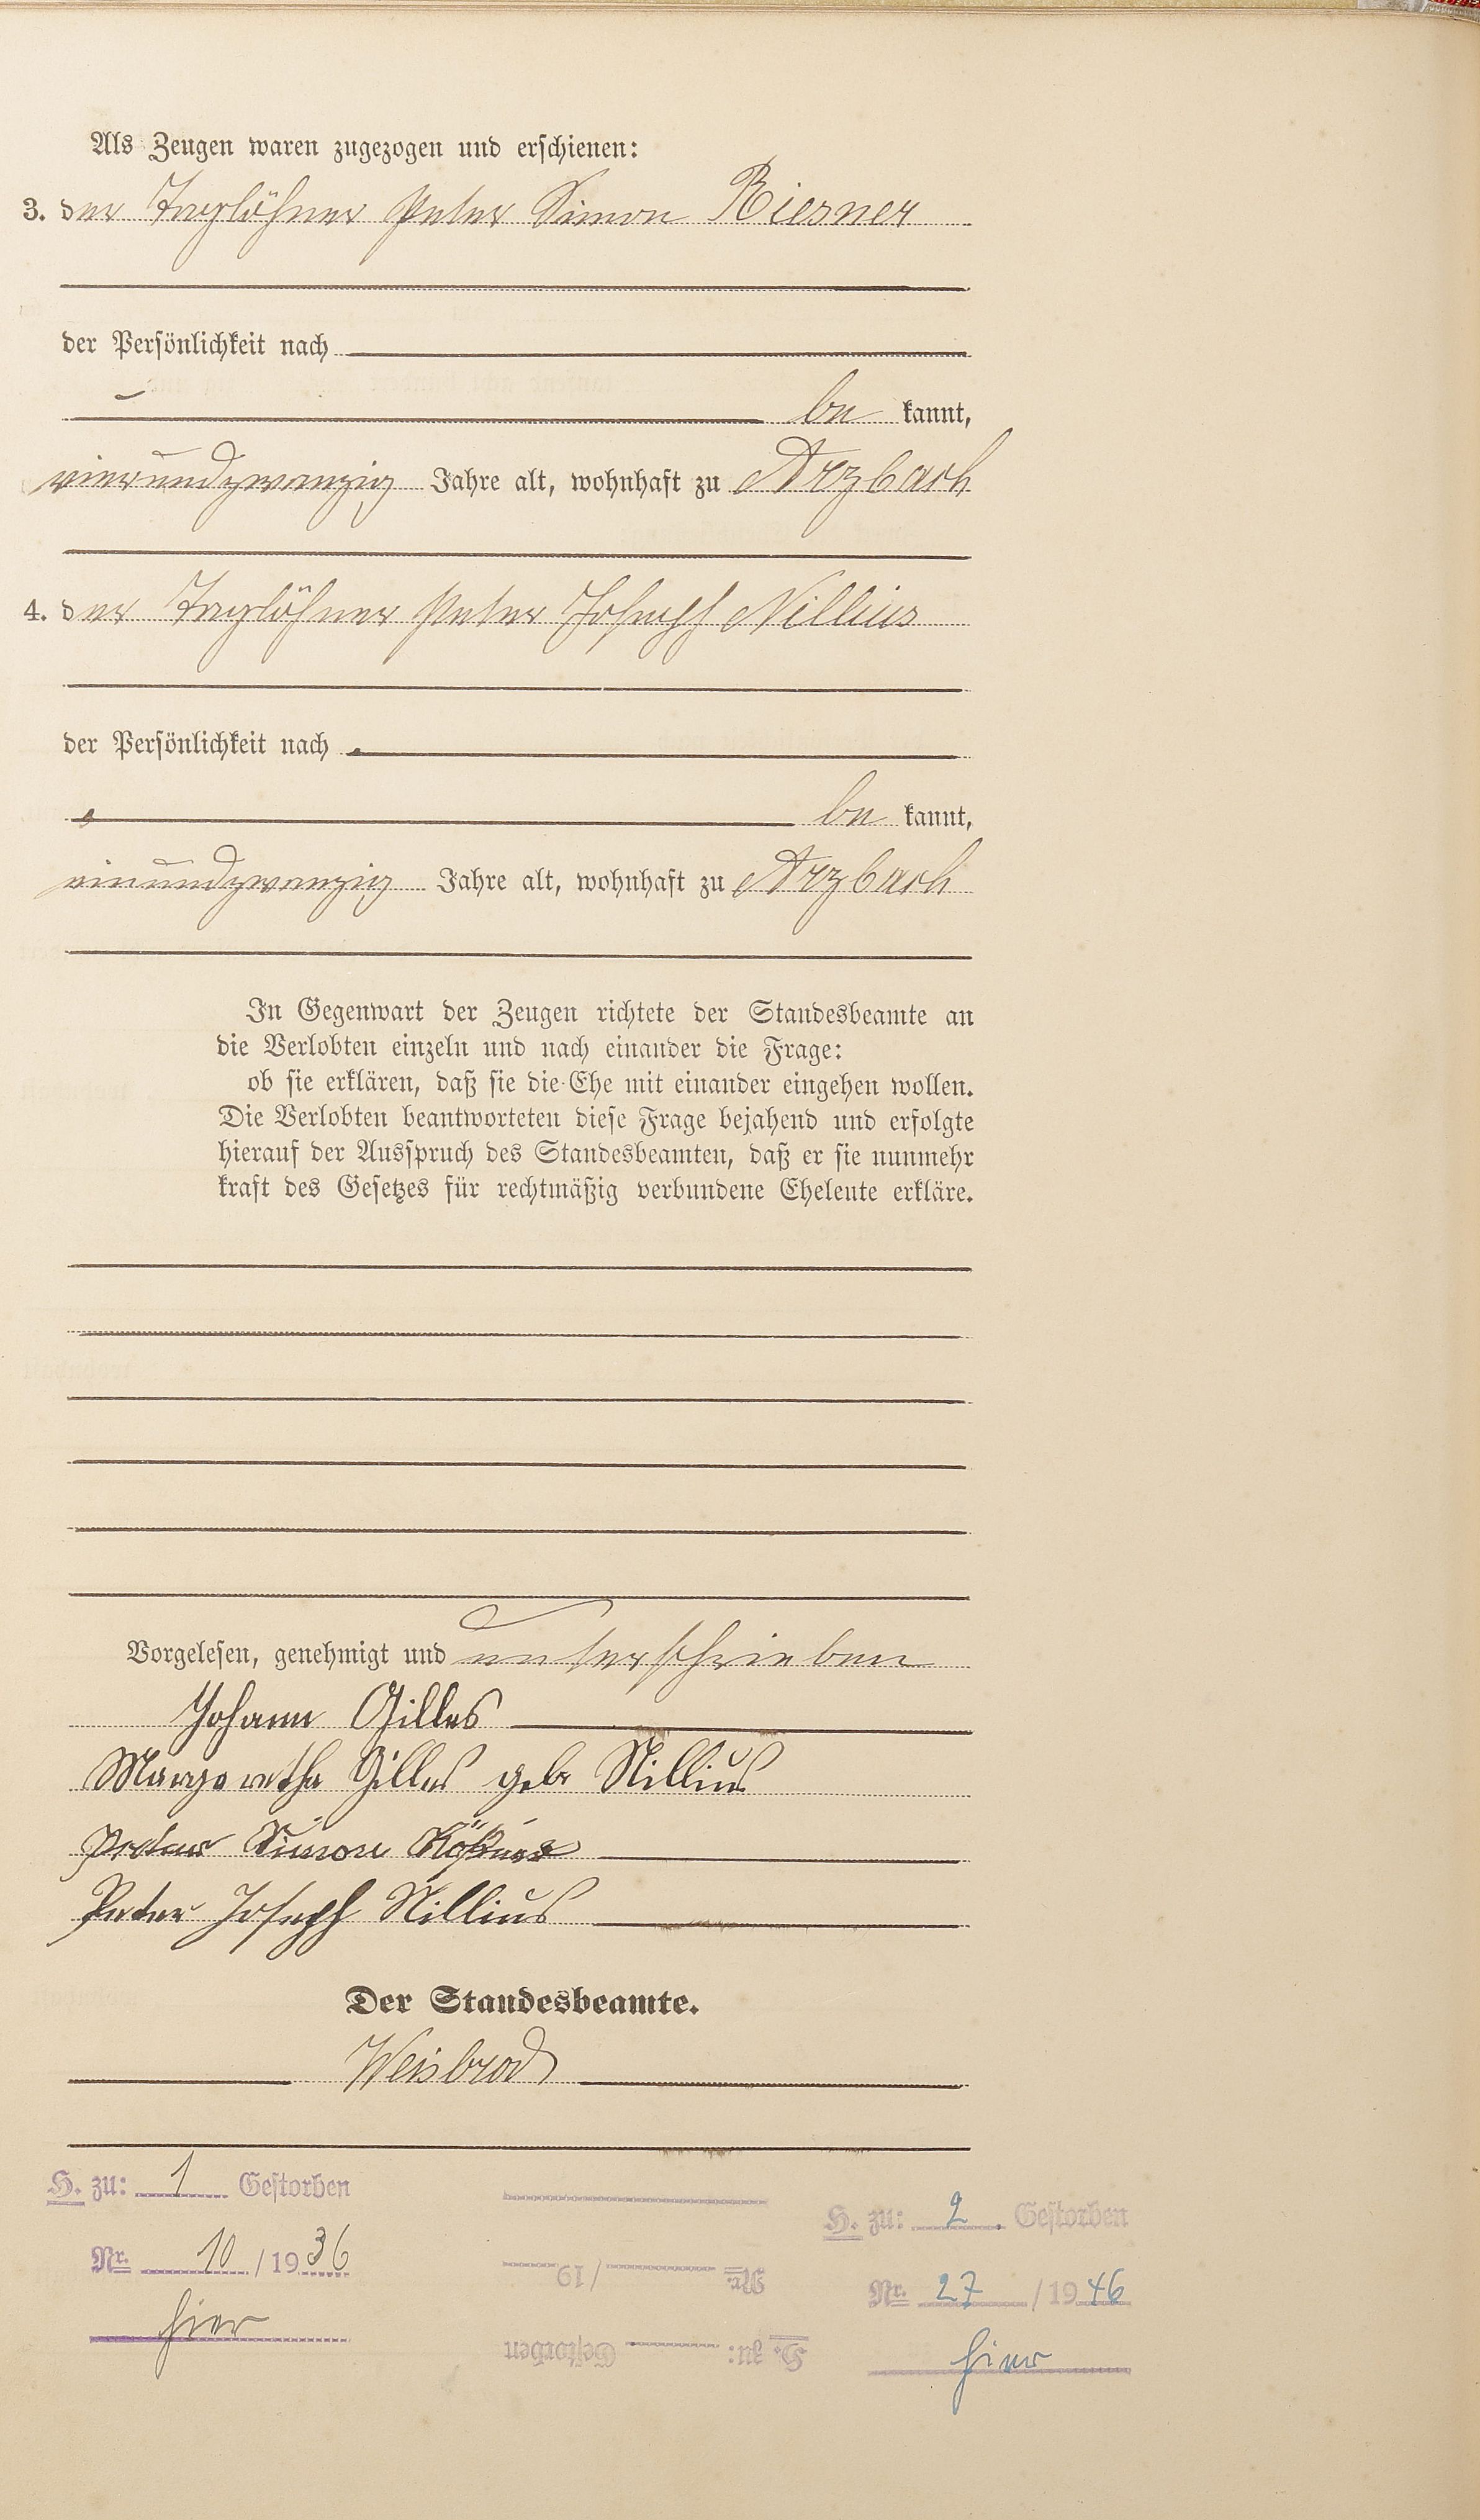 Als Zeugen waren zugezogen und erschienen:
3. der Taglöhner Peter Simon Biesner
der Persönlichkeit nach
be kannt,
vierundzwanzig Jahre alt, wohnhaft zu Arzbach
4. der Taglöhner Peter Joseph Nillius
der Persönlichkeit nach
be kannt,
einundzwanzig Jahre alt, wohnhaft zu Arzbach
In Gegenwart der Zeugen richtete der Standesbeamte an
die Verlobten einzeln und nach einander die Frage:
ob sie erklären, daß sie die Ehe mit einander eingehen wollen.
Die Verlobten beantworteten diese Frage bejahend und erfolgte
hierauf der Ausspruch des Standesbeamten, daß er sie nunmehr
kraft des Gesetzes für rechtmäßig verbundene Eheleute erkläre.
Vorgelesen, genehmigt und unterschrieben
Johann Gilles
Margaretha Gilles geb Nillius
Peter Simon
Peter Joseph Nillius
Der Standesbeamte.
Weisbrod
H. zu: 1 Gestorben
Nr. 10 / 1936
hier
H. zu: Gestorben
Nr. / 19
H. zu: 2 Gestorben
Nr. 27 / 1946
hier